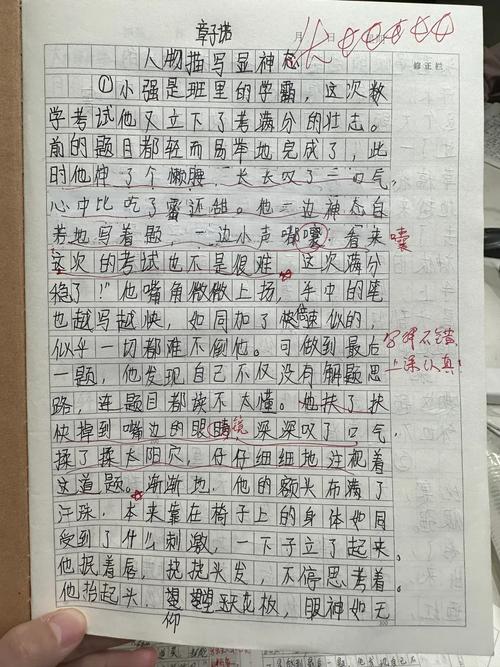 章子诺
人物描写显神态
修正栏
①小强是班里的学霸，这次数
学考试他又立下了考满分的壮志。
前的题目都轻而易举地完成了，此
时他伸了个懒腰，长长叹了一口气，
心中比吃了蜜还甜。他一边神态自
若地写着题，一边小声嘟囔：看来
囔
这次的考试也不是很难。这次满分
稳了！”他嘴角微微上扬，手中的笔
也越写越快，如同加了倍速似的，
似乎一切都难不倒他。可做到最后
字写不错
上课认真！
一题，他发现自己不仅没有解题思
路，连题目都读不太懂。他扶了扶
快掉到嘴边的眼镜，深深叹了口气，
揉了揉太阳穴，仔仔细细地注视着
这道题。渐渐地，他的额头布满了
汗珠，本来靠在椅子上的身体如同
受到了什么刺激，一下子立了起来。
他抿着唇，挠挠头发，不停思考着。
他抬起头，仰望天花板，眼神如无